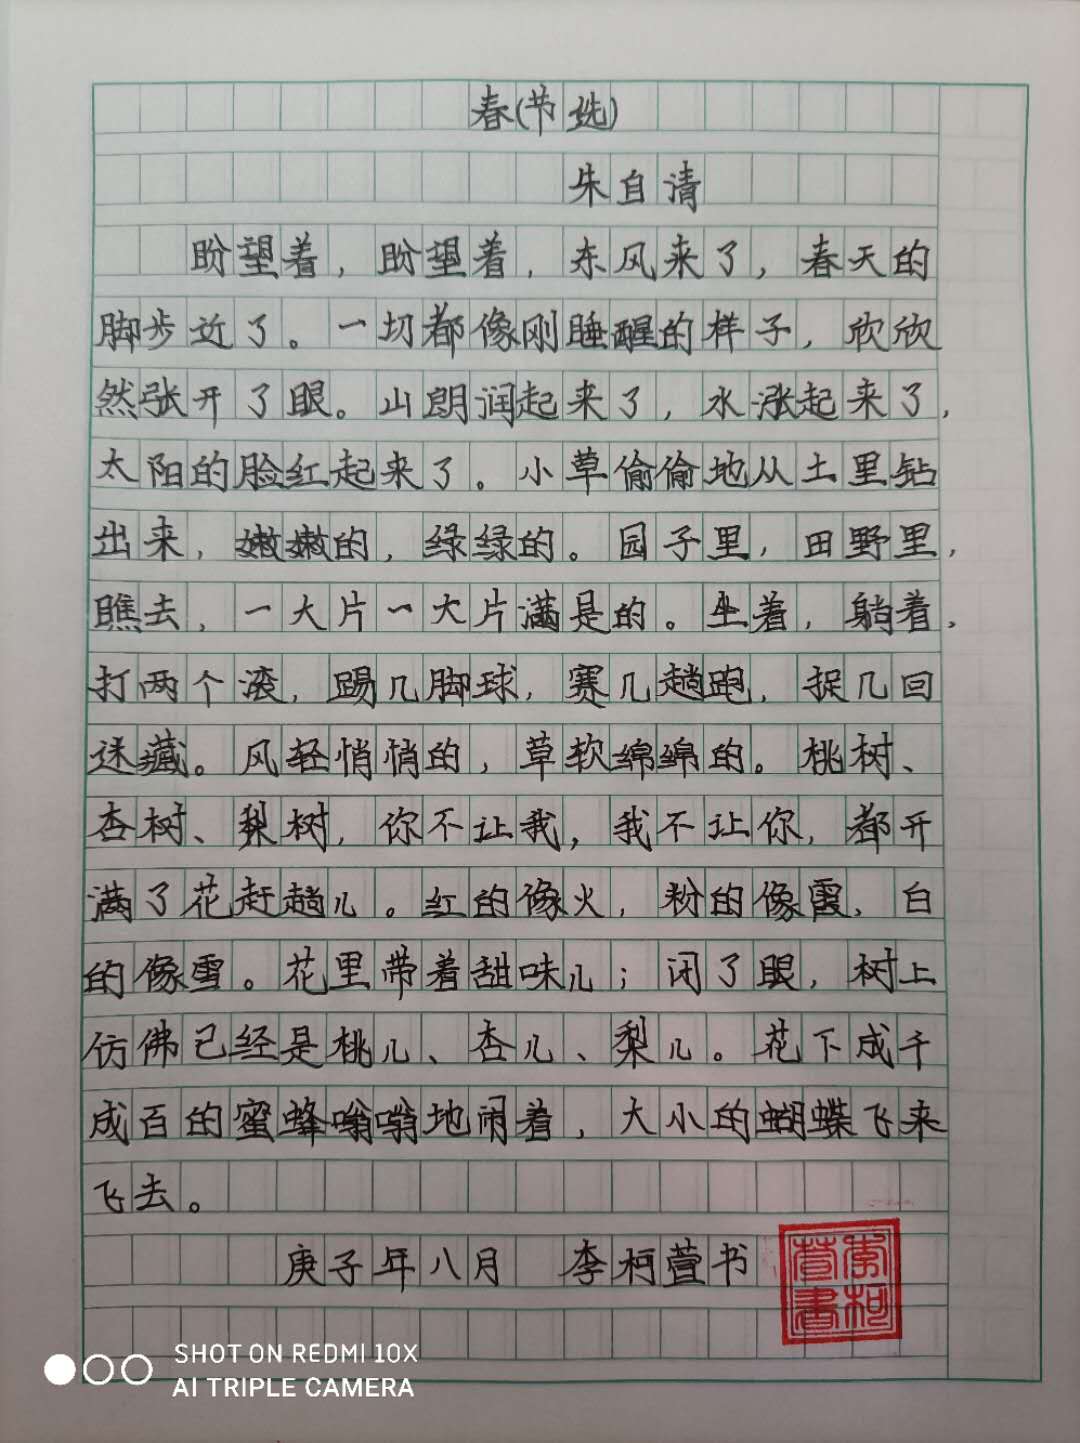 春(节选)
朱自清
盼望着，盼望着，东风来了，春天的
脚步近了。一切都像刚睡醒的样子，欣欣
然张开了眼。山朗润起来了，水涨起来了，
太阳的脸红起来了。小草偷偷地从土里钻
出来，嫩嫩的，绿绿的。园子里，田野里，
瞧去，一大片一大片满是的。坐着，躺着，
打两个滚，踢几脚球，赛几趟跑，捉几回
迷藏。风轻悄悄的，草软绵绵的。桃树、
杏树、梨树，你不让我，我不让你，都开
满了花赶趟儿。红的像火，粉的像霞，白
的像雪。花里带着甜味儿；闭了眼，树上
仿佛已经是桃儿、杏儿、梨儿。花下成千
成百的蜜蜂嗡嗡地闹着，大小的蝴蝶飞来
飞去。
庚子年八月 李柯萱书
李柯萱書
SHOT ON REDMI 10X
AI TRIPLE CAMERA